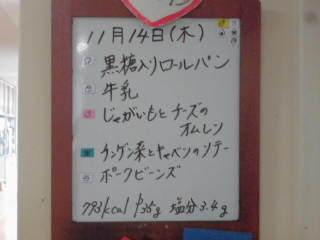 11月14日(木)
黒糖入りロールパン
牛乳
じゃがいもとチーズの
オムレツ
チンゲン菜とキャベツのソテー
ポークビーンズ
793kcal P35g 塩分3.4g